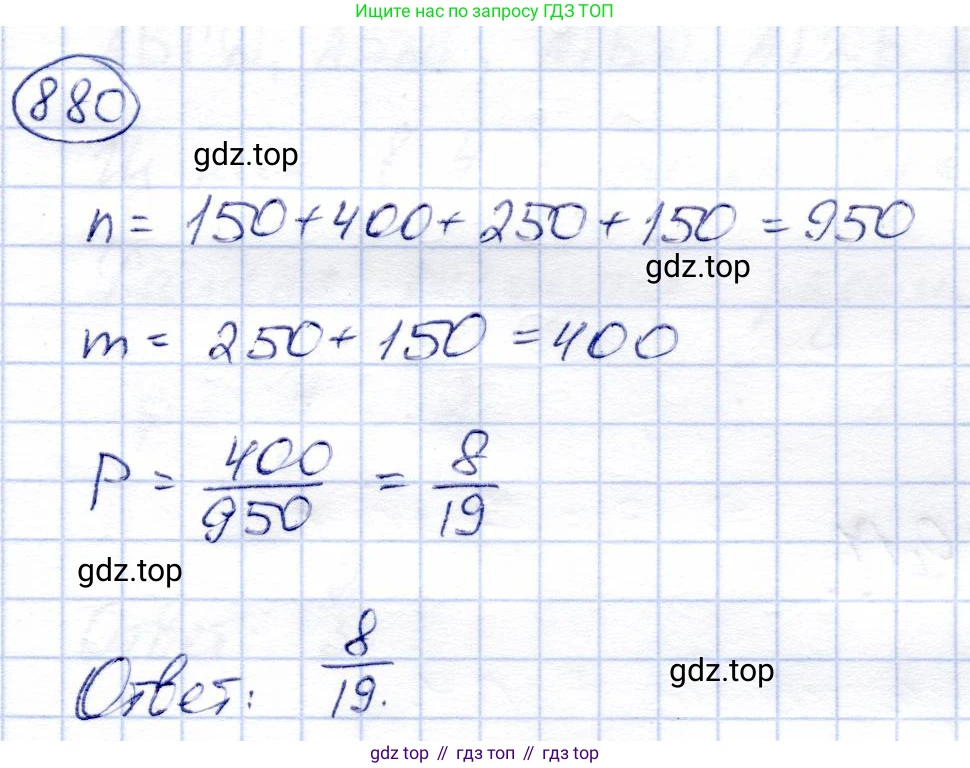 Ищите нас по запросу ГДЗ ТОП
880
gdz.top
n = 150 + 400 + 250 + 150 = 950
gdz.top
m = 250 + 150 = 400
P = 400/950 = 8/19
gdz.top
Ответ: 8/19.
gdz.top
gdz top // гдз топ // gdz top